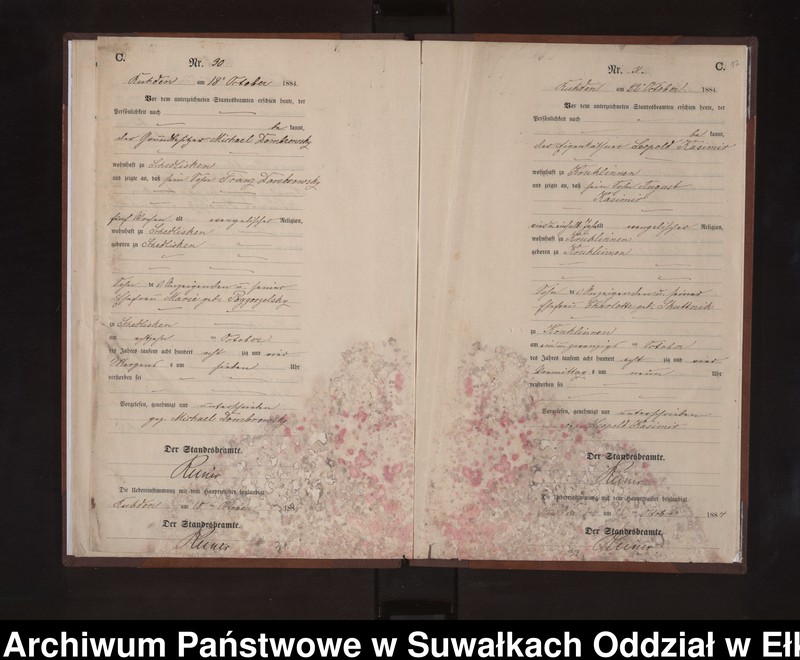 C.
Nr. 30
Kuhden am 18 October 1884.
Vor dem unterzeichneten Standesbeamten erschien heute, der
Persönlichkeit nach
be kannt,
der Grundbesitzer Michael Dombrowsky
wohnhaft zu Schedlisken
und zeigte an, daß sein Sohn Franz Dombrowsky
fünf Wochen alt evangelischer Religion,
wohnhaft zu Schedlisken
geboren zu Schedlisken
Sohn des Anzeigenden u. seiner
Ehefrau Marie geb.
zu Schedlisken
am October
des Jahres tausend acht hundert acht zig und vier
Morgens um sieben Uhr
verstorben sei
Vorgelesen, genehmigt und unterschrieben
gez. Michael Dombrowsky
Der Standesbeamte.
Reiner
Die Uebereinstimmung mit dem Hauptregister beglaubigt
Kuhden am 18 188
Der Standesbeamte.
Reiner
C.
Nr.
Kuhden am 22 October 1884.
Vor dem unterzeichneten Standesbeamten erschien heute, der
Persönlichkeit nach
be kannt,
der Eigenkäthner Leopold Kasimir
wohnhaft zu Krukl­innen
und zeigte an, daß sein Sohn August
Kasimir
alt evangelischer Religion,
wohnhaft zu Kruklinnen
geboren zu Kruklinnen
Sohn des Anzeigenden u. seiner
Ehefrau Charlotte geb. Skuttnik
zu Kruklinnen
am ein und zwanzigst en October
des Jahres tausend acht hundert acht zig und vier
Vormittags um neun Uhr
verstorben sei
Vorgelesen, genehmigt und unterschrieben
gez. Leopold Kasimir
Der Standesbeamte.
Reiner
Die Uebereinstimmung mit dem Hauptregister beglaubigt
am October 1884
Der Standesbeamte.
Reiner
Archiwum Państwowe w Suwałkach Oddział w Ełk